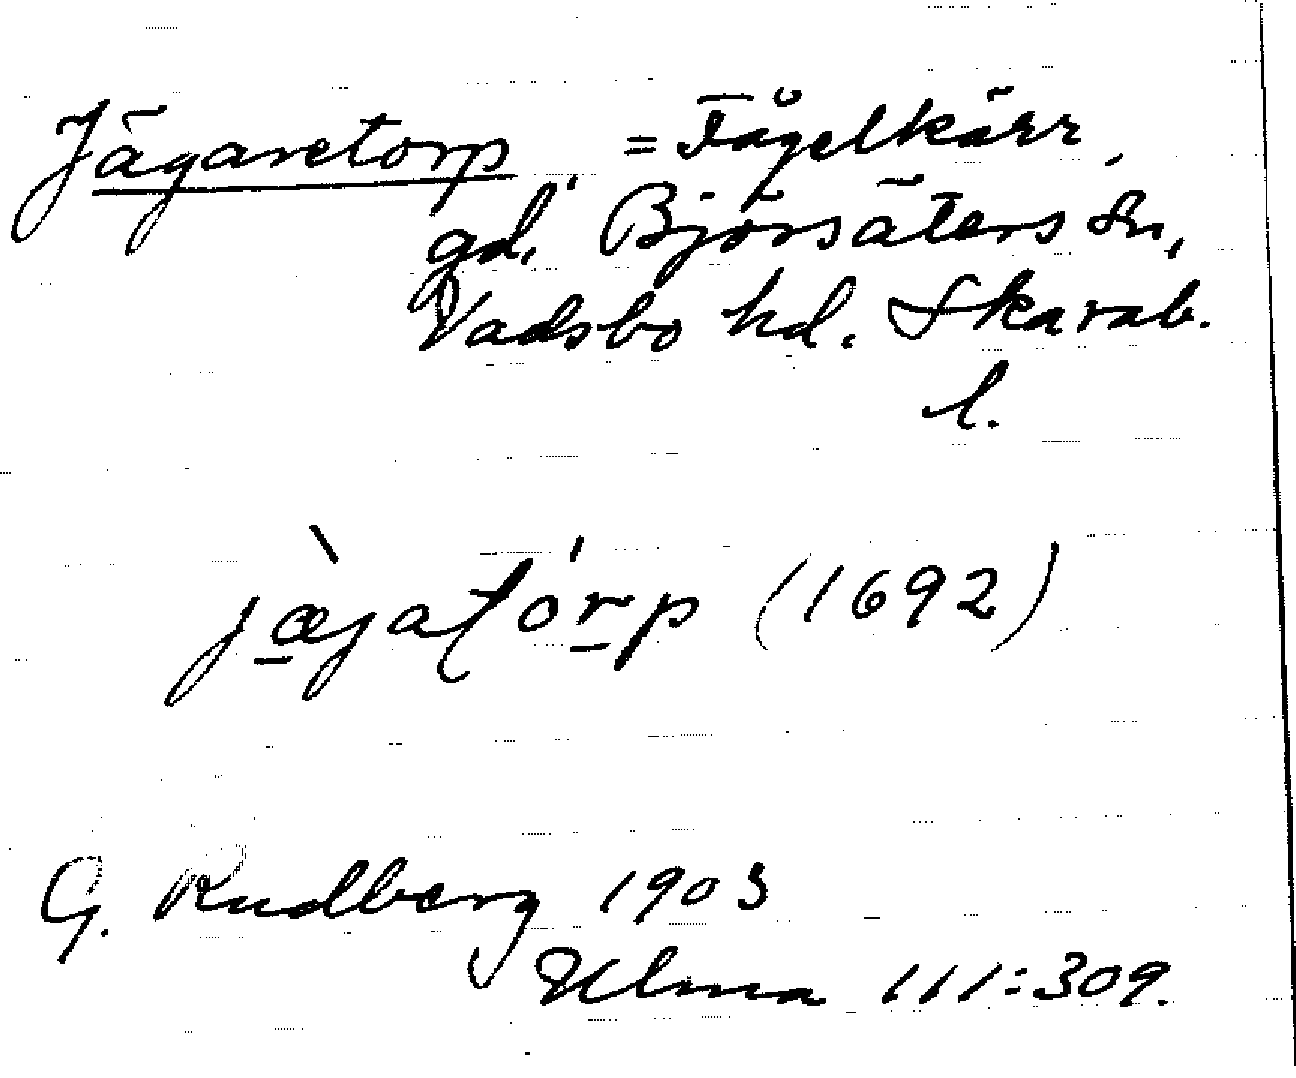 Jägaretorp = Fågelkärr,
gd. Björsäters sn,
Vadsbo hd. Skarab.
l.
jæ̀jatórp (1692)
G. Rudberg 1903
Ulma 111:309.